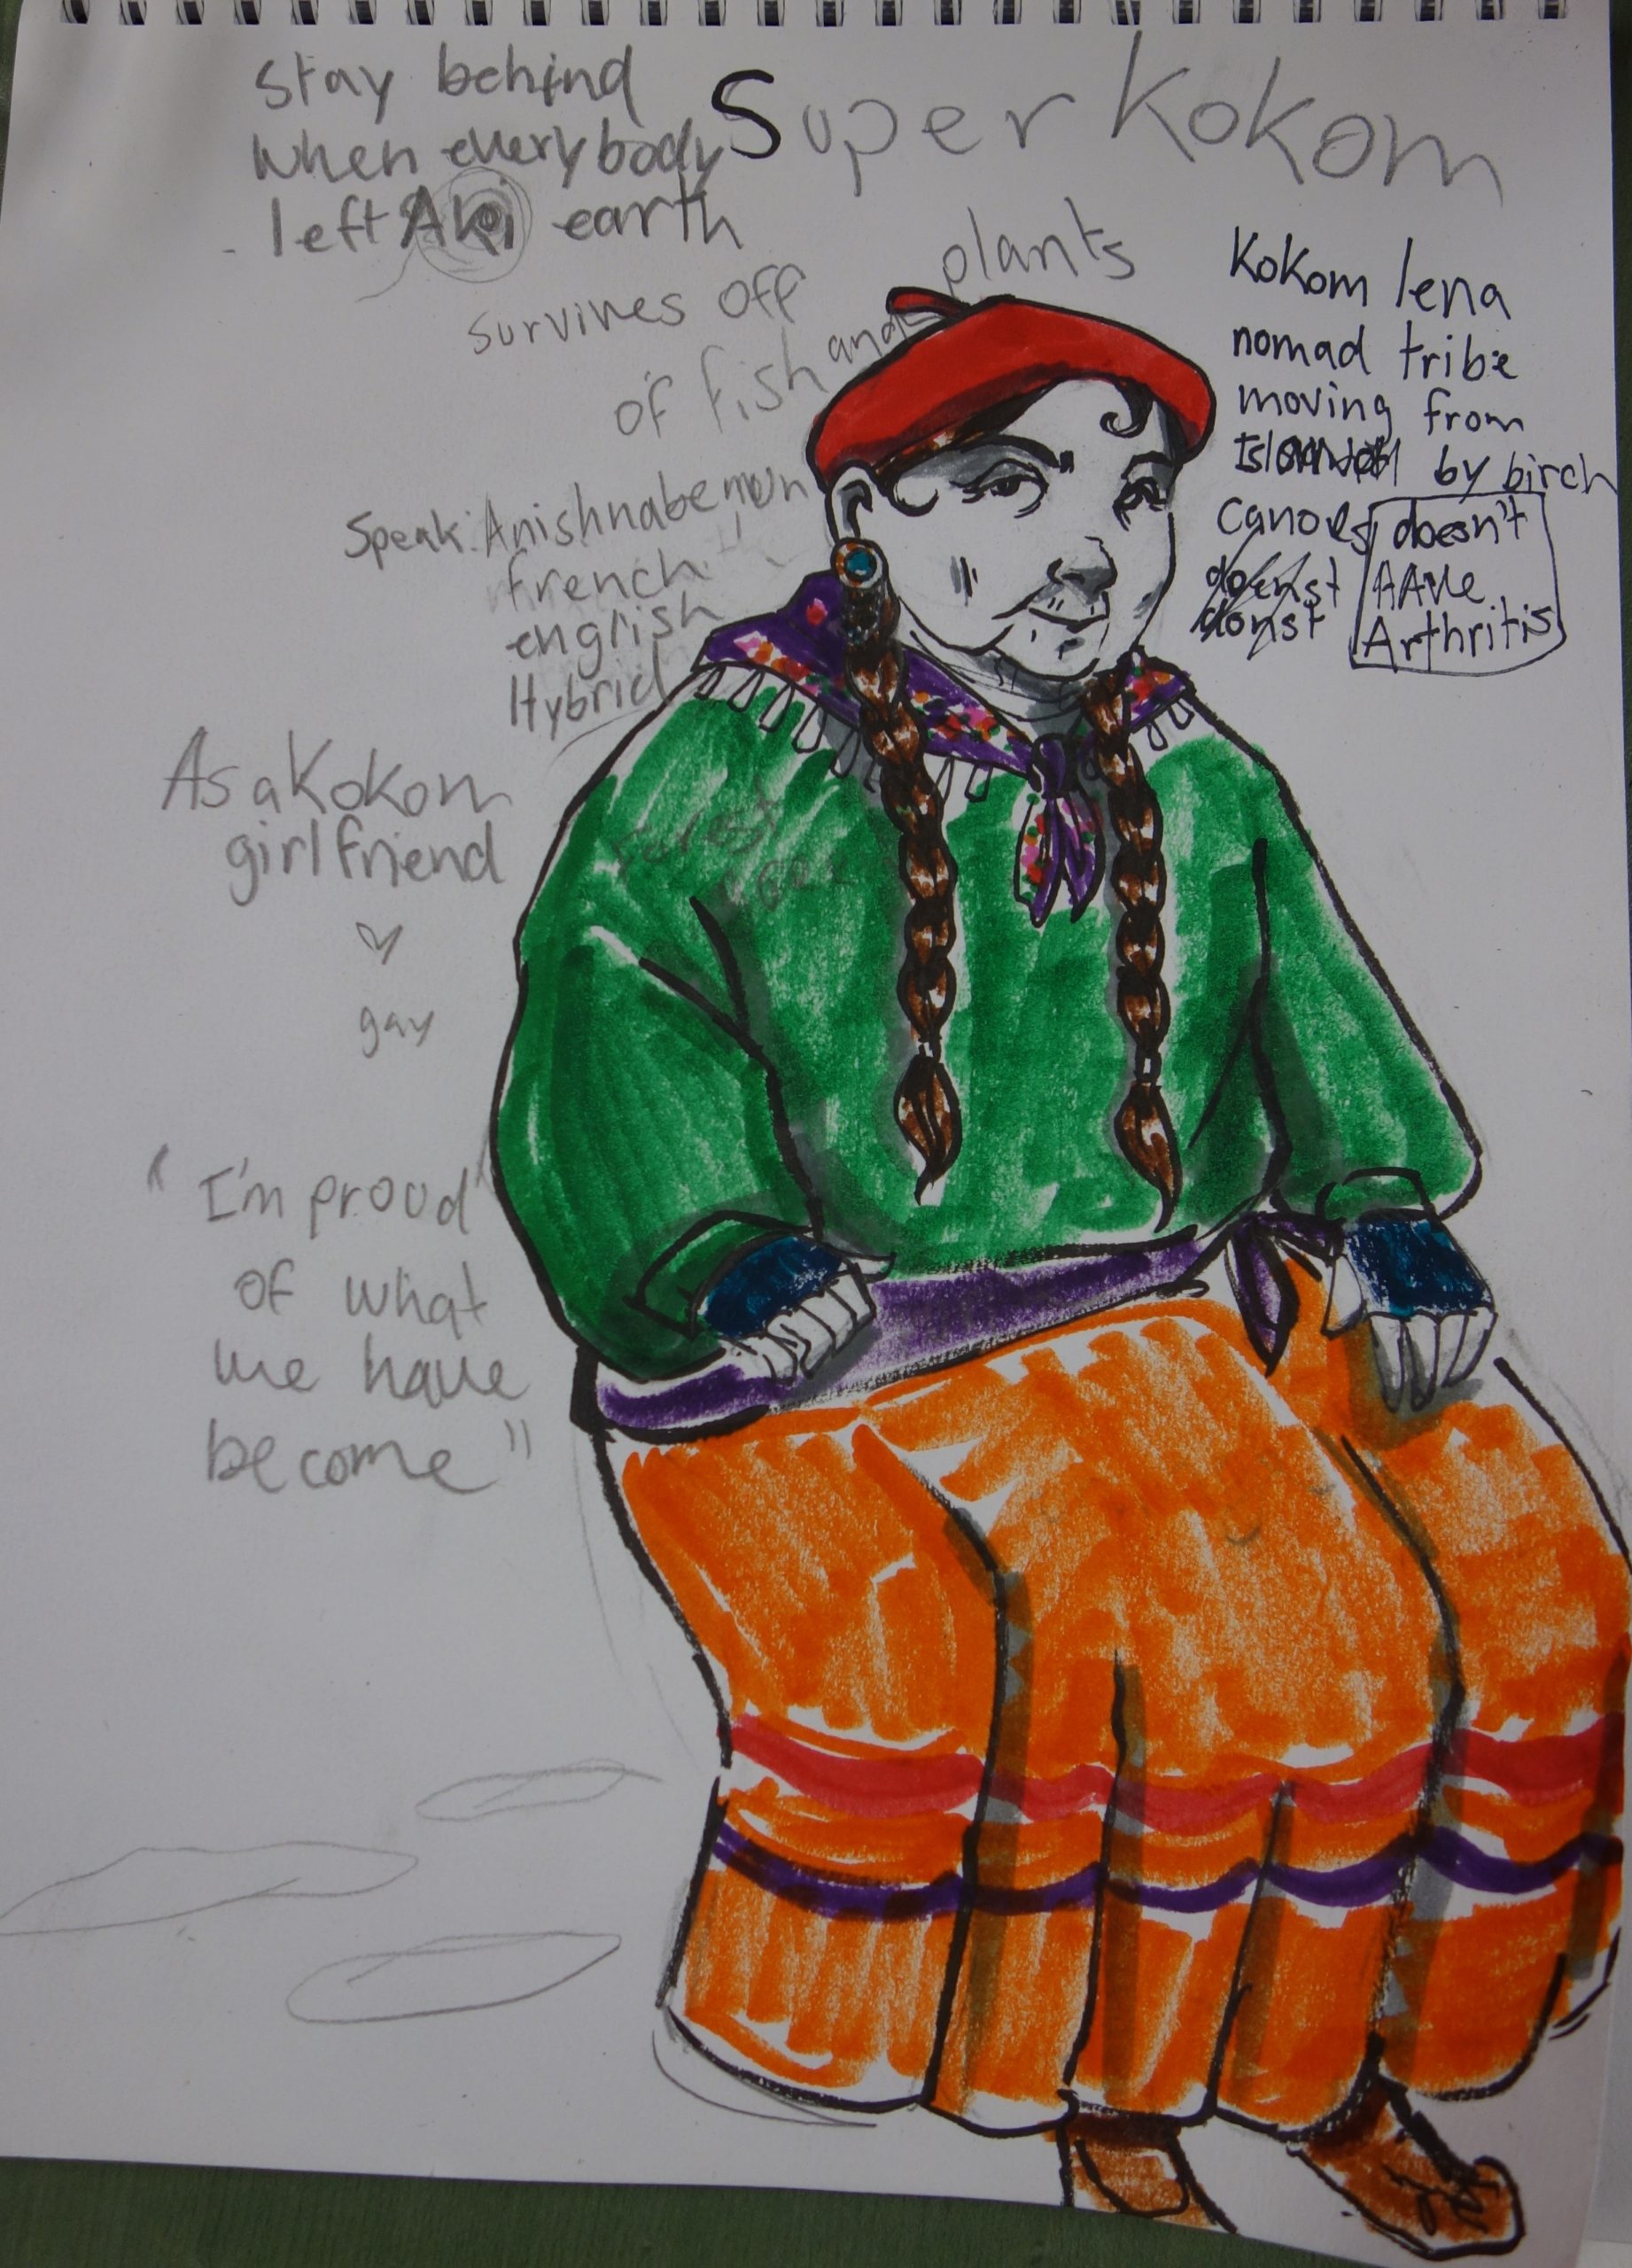 Super Kokom
Stay behind
when everybody
left Aki earth
survives off
of fish and plants
Speak: Anishnabemon
french
english
Hybrid
As a Kokom
girlfriend
gay
"I'm proud
of what
we have
become"
Kokom lena
nomad tribe
moving from
by birch
canoes
doesn't
HAVe
Arthritis